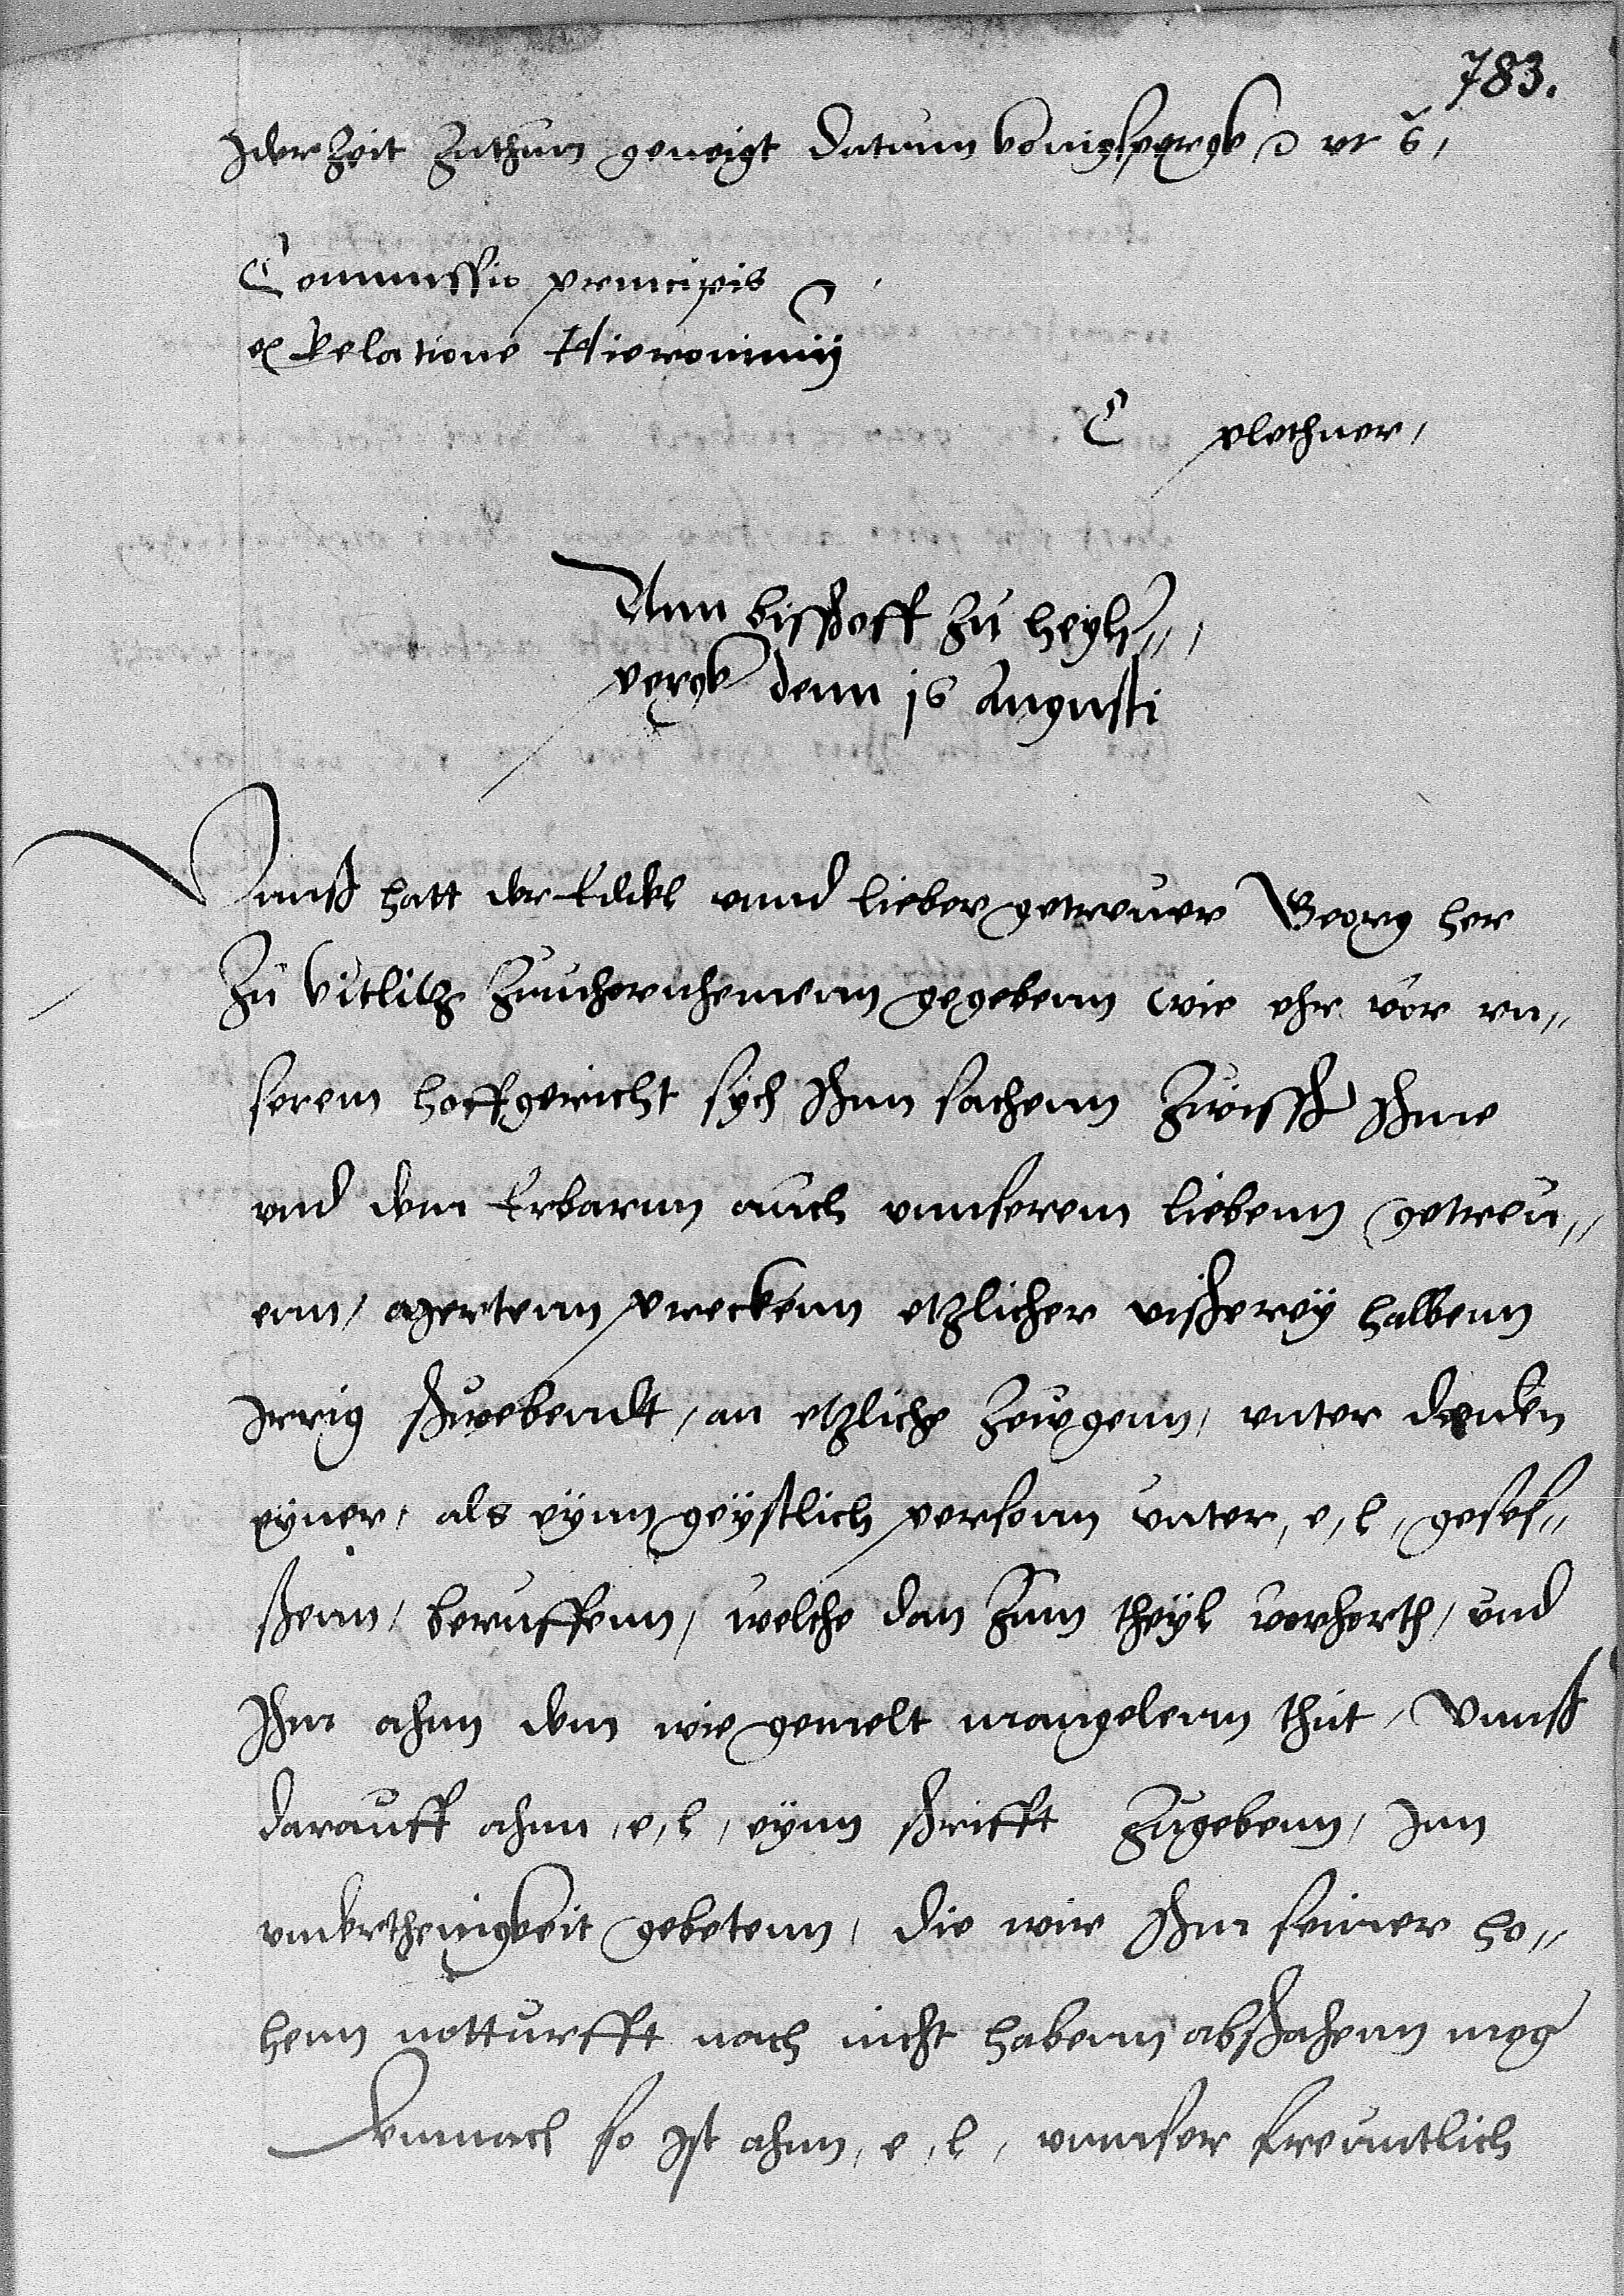 783.
Jderzeit zuthun geneigt datum konigspergk ut s,
Commissio principis
ex Relatione Hieronimij
C plethner,
Ann bisschoff zu heyls,,
pergk denn 16 Augusti
Vnnß hatt der Eddel vnnd lieber getreuer Georg her
zu kitlitz zuuhernhemenn gegebenn wie ehr vor vn,,
serem hoffgericht sych Ihnn sachenn zwissch Ihme
vnd dem Erbarnn auch vnnserem liebenn getreu,,
enn, mertenn preckenn etzlicher vischerey halbenn
Irrig schwebendt, an etzliche Zewgenn, vnter denden
eyner, als eynn geystlich personn vnter, e, l,, geses,,
ssenn, beruffenn, welche dan zum theyl verherth, vnd
Ihm ahnn dem wie gemelt mangelenn thut, Vnnß
darauff ahnn, e, l, eynn schrifft zugebenn, Inn
vnderthenigkeit gebetenn, die wir Ihm seiner ho,,
henn notturfft nach nicht habenn abschahenn mog
Demnach so Ist ahnn, e, l, vnnser freuntlich